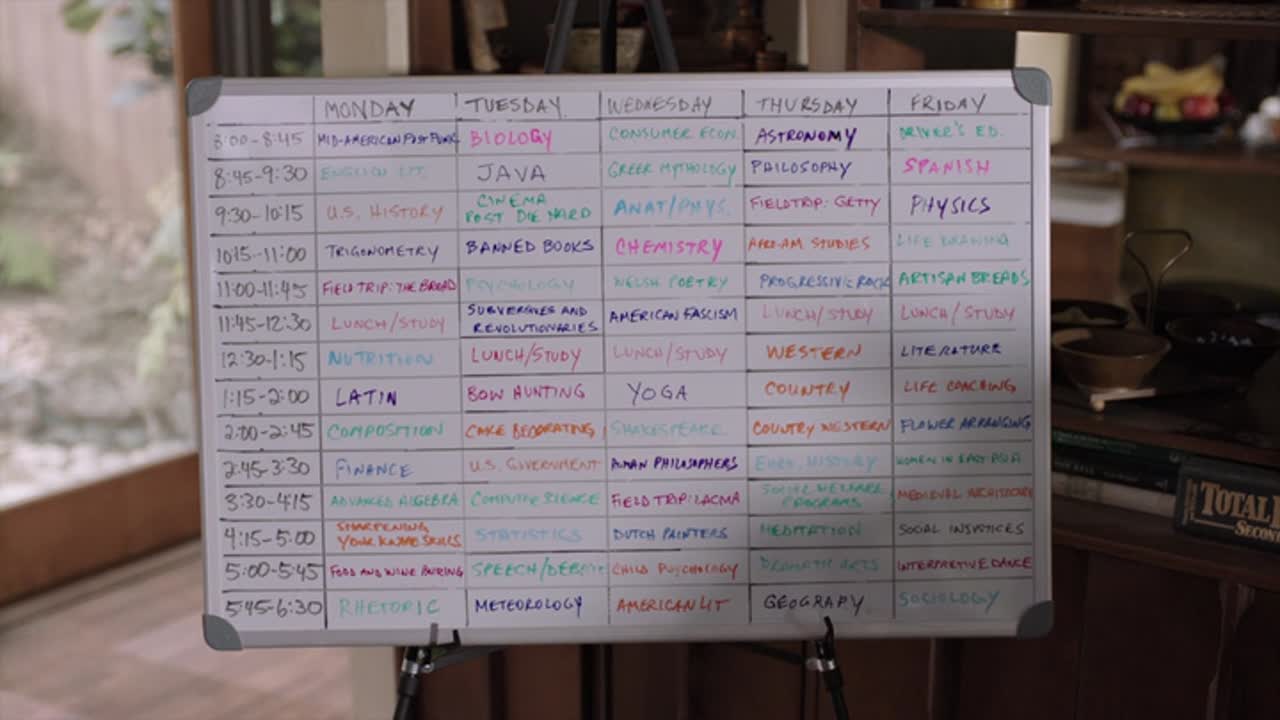 MONDAY TUESDAY WEDNESDAY THURSDAY FRIDAY
8:00-8:45 MID-AMERICAN POST PUNK BIOLOGY CONSUMER ECON. ASTRONOMY DRIVER'S ED.
8:45-9:30 ENGLISH LIT. JAVA GREEK MYTHOLOGY PHILOSOPHY SPANISH
9:30-10:15 U.S. HISTORY CINEMA POST DIE HARD ANAT/PHYS. FIELDTRIP: GETTY PHYSICS
10:15-11:00 TRIGONOMETRY BANNED BOOKS CHEMISTRY AFRO-AM STUDIES LIFE DRAWING
11:00-11:45 FIELD TRIP: THE BROAD PSYCHOLOGY WELSH POETRY PROGRESSIVE ROCK ARTISAN BREADS
11:45-12:30 LUNCH/STUDY SUBVERSIVES AND REVOLUTIONARIES AMERICAN FASCISM LUNCH/STUDY LUNCH/STUDY
12:30-1:15 NUTRITION LUNCH/STUDY LUNCH/STUDY WESTERN LITERATURE
1:15-2:00 LATIN BOW HUNTING YOGA COUNTRY LIFE COACHING
2:00-2:45 COMPOSITION CAKE DECORATING SHAKESPEARE COUNTRY WESTERN FLOWER ARRANGING
2:45-3:30 FINANCE U.S. GOVERNMENT PHILOSOPHERS EURO. HISTORY WOMEN IN EAST ASIA
3:30-4:15 ADVANCED ALGEBRA COMPUTER SCIENCE FIELD TRIP: LACMA SOCIAL WELFARE PROGRAMS MEDIEVAL ARCHITECTURE
4:15-5:00 SHARPENING YOUR KNIFE SKILLS STATISTICS DUTCH PAINTERS MEDITATION SOCIAL INJUSTICES
5:00-5:45 FOOD AND WINE PAIRING SPEECH/DEBATE CHILD PSYCHOLOGY DRAMATIC ARTS INTERPRETIVE DANCE
5:45-6:30 RHETORIC METEOROLOGY AMERICAN LIT GEOGRAPY SOCIOLOGY
TOTAL
SECON